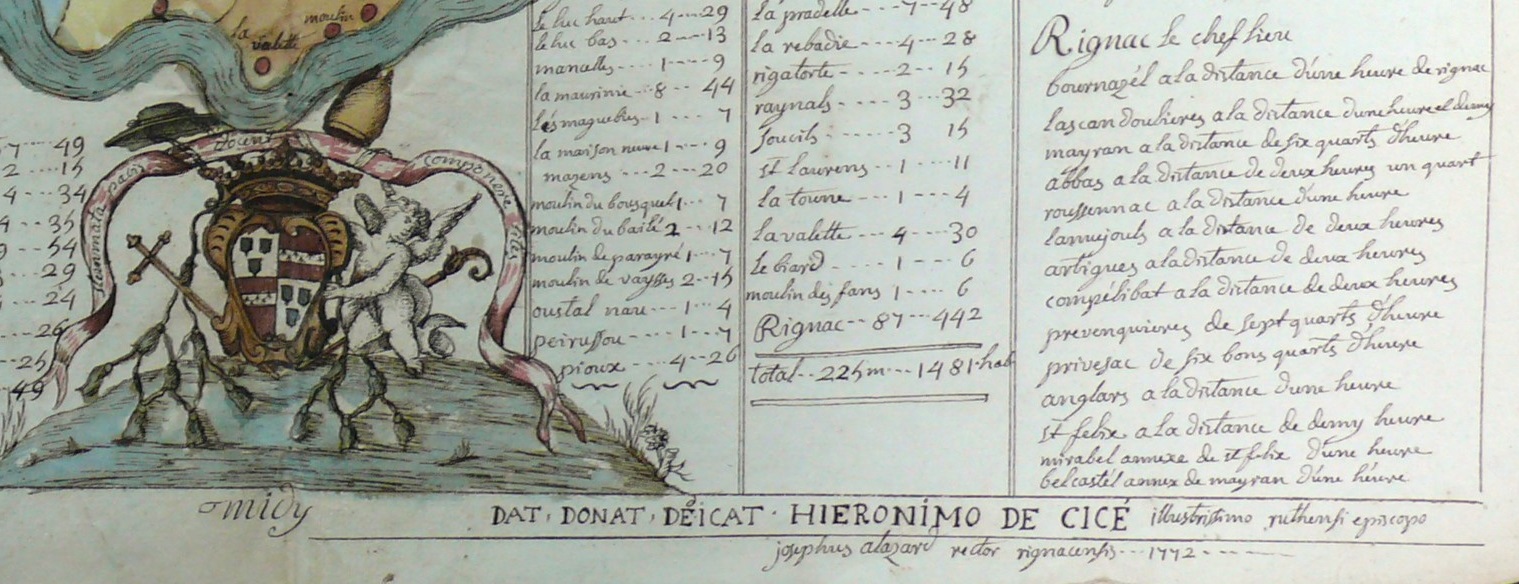 la
valette
moulin
7 --- 49
2 --- 15
4 --- 34
4 --- 35
9 --- 54
29
4 --- 24
26
25
49
stemmata pacis
docent
componere
lites
midy
le luc haut --- 4 --- 29
le luc bas --- 2 --- 13
marcelles --- 1 --- 9
la maurinie -- 8 --- 44
les maguebies - 1 --- 7
la maison neuve 1 --- 9
mazens --- 2 --- 20
moulin du bousquet 1 -- 7
moulin du bailé 2 --- 12
moulin de parayré 1 --- 7
moulin de vaysses 2 -- 15
oustal nau --- 1 --- 4
peirussou --- 1 --- 7
pioux --- 4 --- 26
la pradelle --- 7 -- 48
la rebadie --- 4 --- 28
rigatorte --- 2 --- 15
raynals --- 3 --- 32
soucils --- 3 15
st laurens --- 1 --- 11
la toune --- 1 --- 4
lavalette --- 4 --- 30
le biard --- 1 --- 6
moulin des fans 1 --- 6
Rignac -- 87 --- 442
total -- 225 m --- 1481 · hab
Rignac le chef lieu
bournazél a la distance d'une heure de rignac
lascandoulieres a la distance d'une heure et demy
mayran a la distance de six quarts d'heure
abbas a la distance de deux heures un quart
roussennac a la distance d'une heure
lanuejouls a la distance de deux heures
artigues a la distance de deux heures
compélibat a la distance de deux heures
prevenquieres de sept quarts d'heure
privesac de six bons quarts d'heure
anglars a la distance d'une heure
st felix a la distance de demy heure
mirabel annexe de st felix d'une heure
belcastél annex de mayran d'une heure
DAT, DONAT, DEICAT · HIERONIMO DE CICÉ illustrissimo ruthensi episcopo
josephus alazard rector rignacensis --- 1772 ---